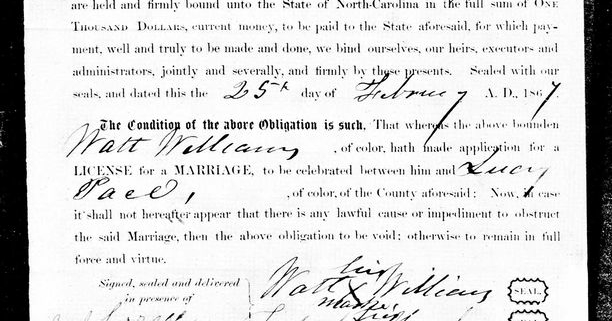 are held and firmly bound unto the State of North-Carolina in the full sum of ONE
THOUSAND DOLLARS, current money, to be paid to the State aforesaid, for which pay-
ment, well and truly to be made and done, we bind ourselves, our heirs, executors and
administrators, jointly and severally, and firmly by these presents. Sealed with our
seals, and dated this the 25th day of February A. D., 1867.
The Condition of the above Obligation is such, That whereas the above bounden
Watt Williams, of color, hath made application for a
LICENSE for a MARRIAGE, to be celebrated between him and Lucy
Pace, , of color, of the County aforesaid: Now, in case
it shall not hereafter appear that there is any lawful cause or impediment to obstruct
the said Marriage, then the above obligation to be void; otherwise to remain in full
force and virtue.
Signed, sealed and delivered
in presence of
his
Watt X Williams SEAL.
mark